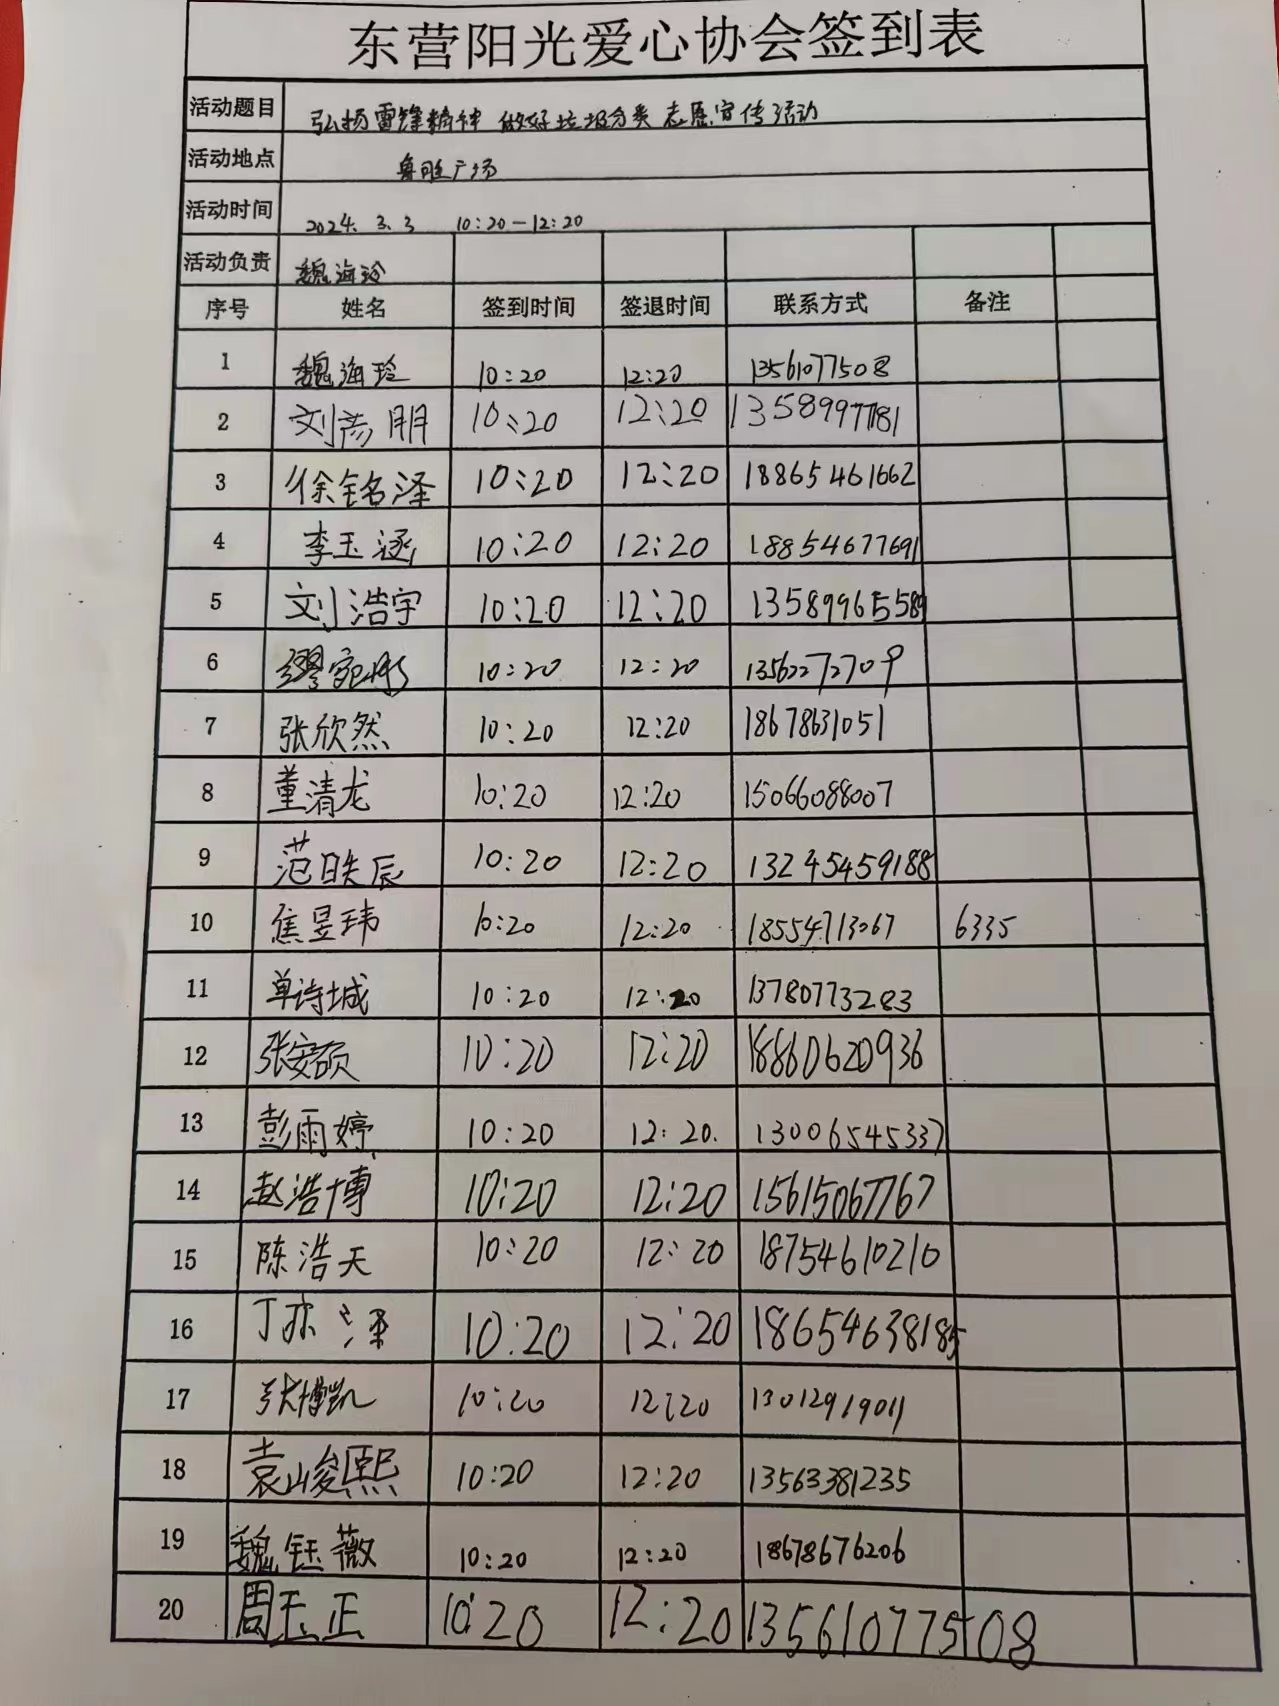 东营阳光爱心协会签到表
活动题目 弘扬雷锋精神 做好垃圾分类 志愿宣传活动
活动地点 鲁胜广场
活动时间 2024.3.3 10:20-12:20
活动负责 魏海玲
序号 姓名 签到时间 签退时间 联系方式 备注
1 魏海玲 10:20 12:20 13561077508
2 刘彦朋 10:20 12:20 13589977181
3 徐铭泽 10:20 12:20 18865461662
4 李玉涵 10:20 12:20 18854677691
5 刘浩宇 10:20 12:20 13589965589
6 缪宛彤 10:20 12:20 13562272709
7 张欣然 10:20 12:20 18678631051
8 董清龙 10:20 12:20 15066088007
9 范昳辰 10:20 12:20 13245459188
10 焦昱玮 10:20 12:20 18554713067 6335
11 单诗城 10:20 12:20 13780773283
12 张安硕 10:20 12:20 18860620936
13 彭雨婷 10:20 12:20. 13006545337
14 赵浩博 10:20 12:20 15615067767
15 陈浩天 10:20 12:20 18754610210
16 丁亦泽 10:20 12:20 18654638185
17 张博凯 10:20 12:20 13012919011
18 袁峻熙 10:20 12:20 13563381235
19 魏钰薇 10:20 12:20 18678676206
20 周玉正 10:20 12:20 13561077508